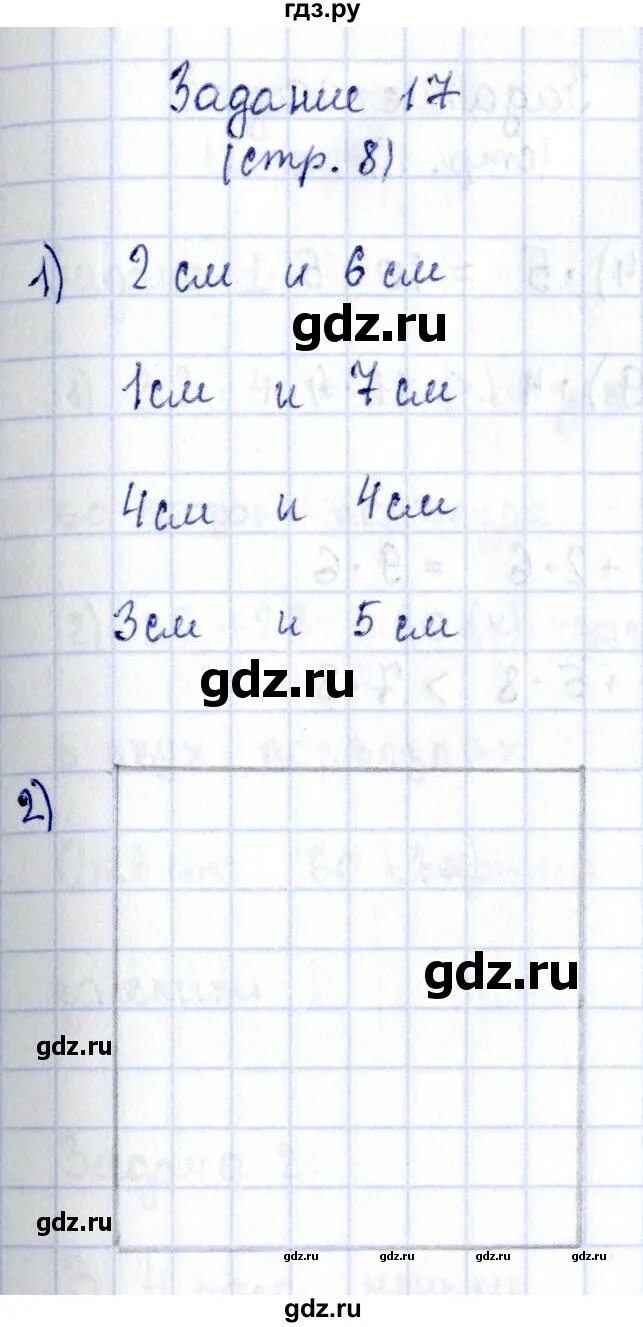 гдз.ру
Задание 17
(стр. 8)
1) 2 см и 6 см
gdz.ru
1 см и 7 см
4 см и 4 см
3 см и 5 см
gdz.ru
2)
gdz.ru
gdz.ru
gdz.ru
gdz.ru gdz.ru gdz.ru gdz.ru
gdz.ru